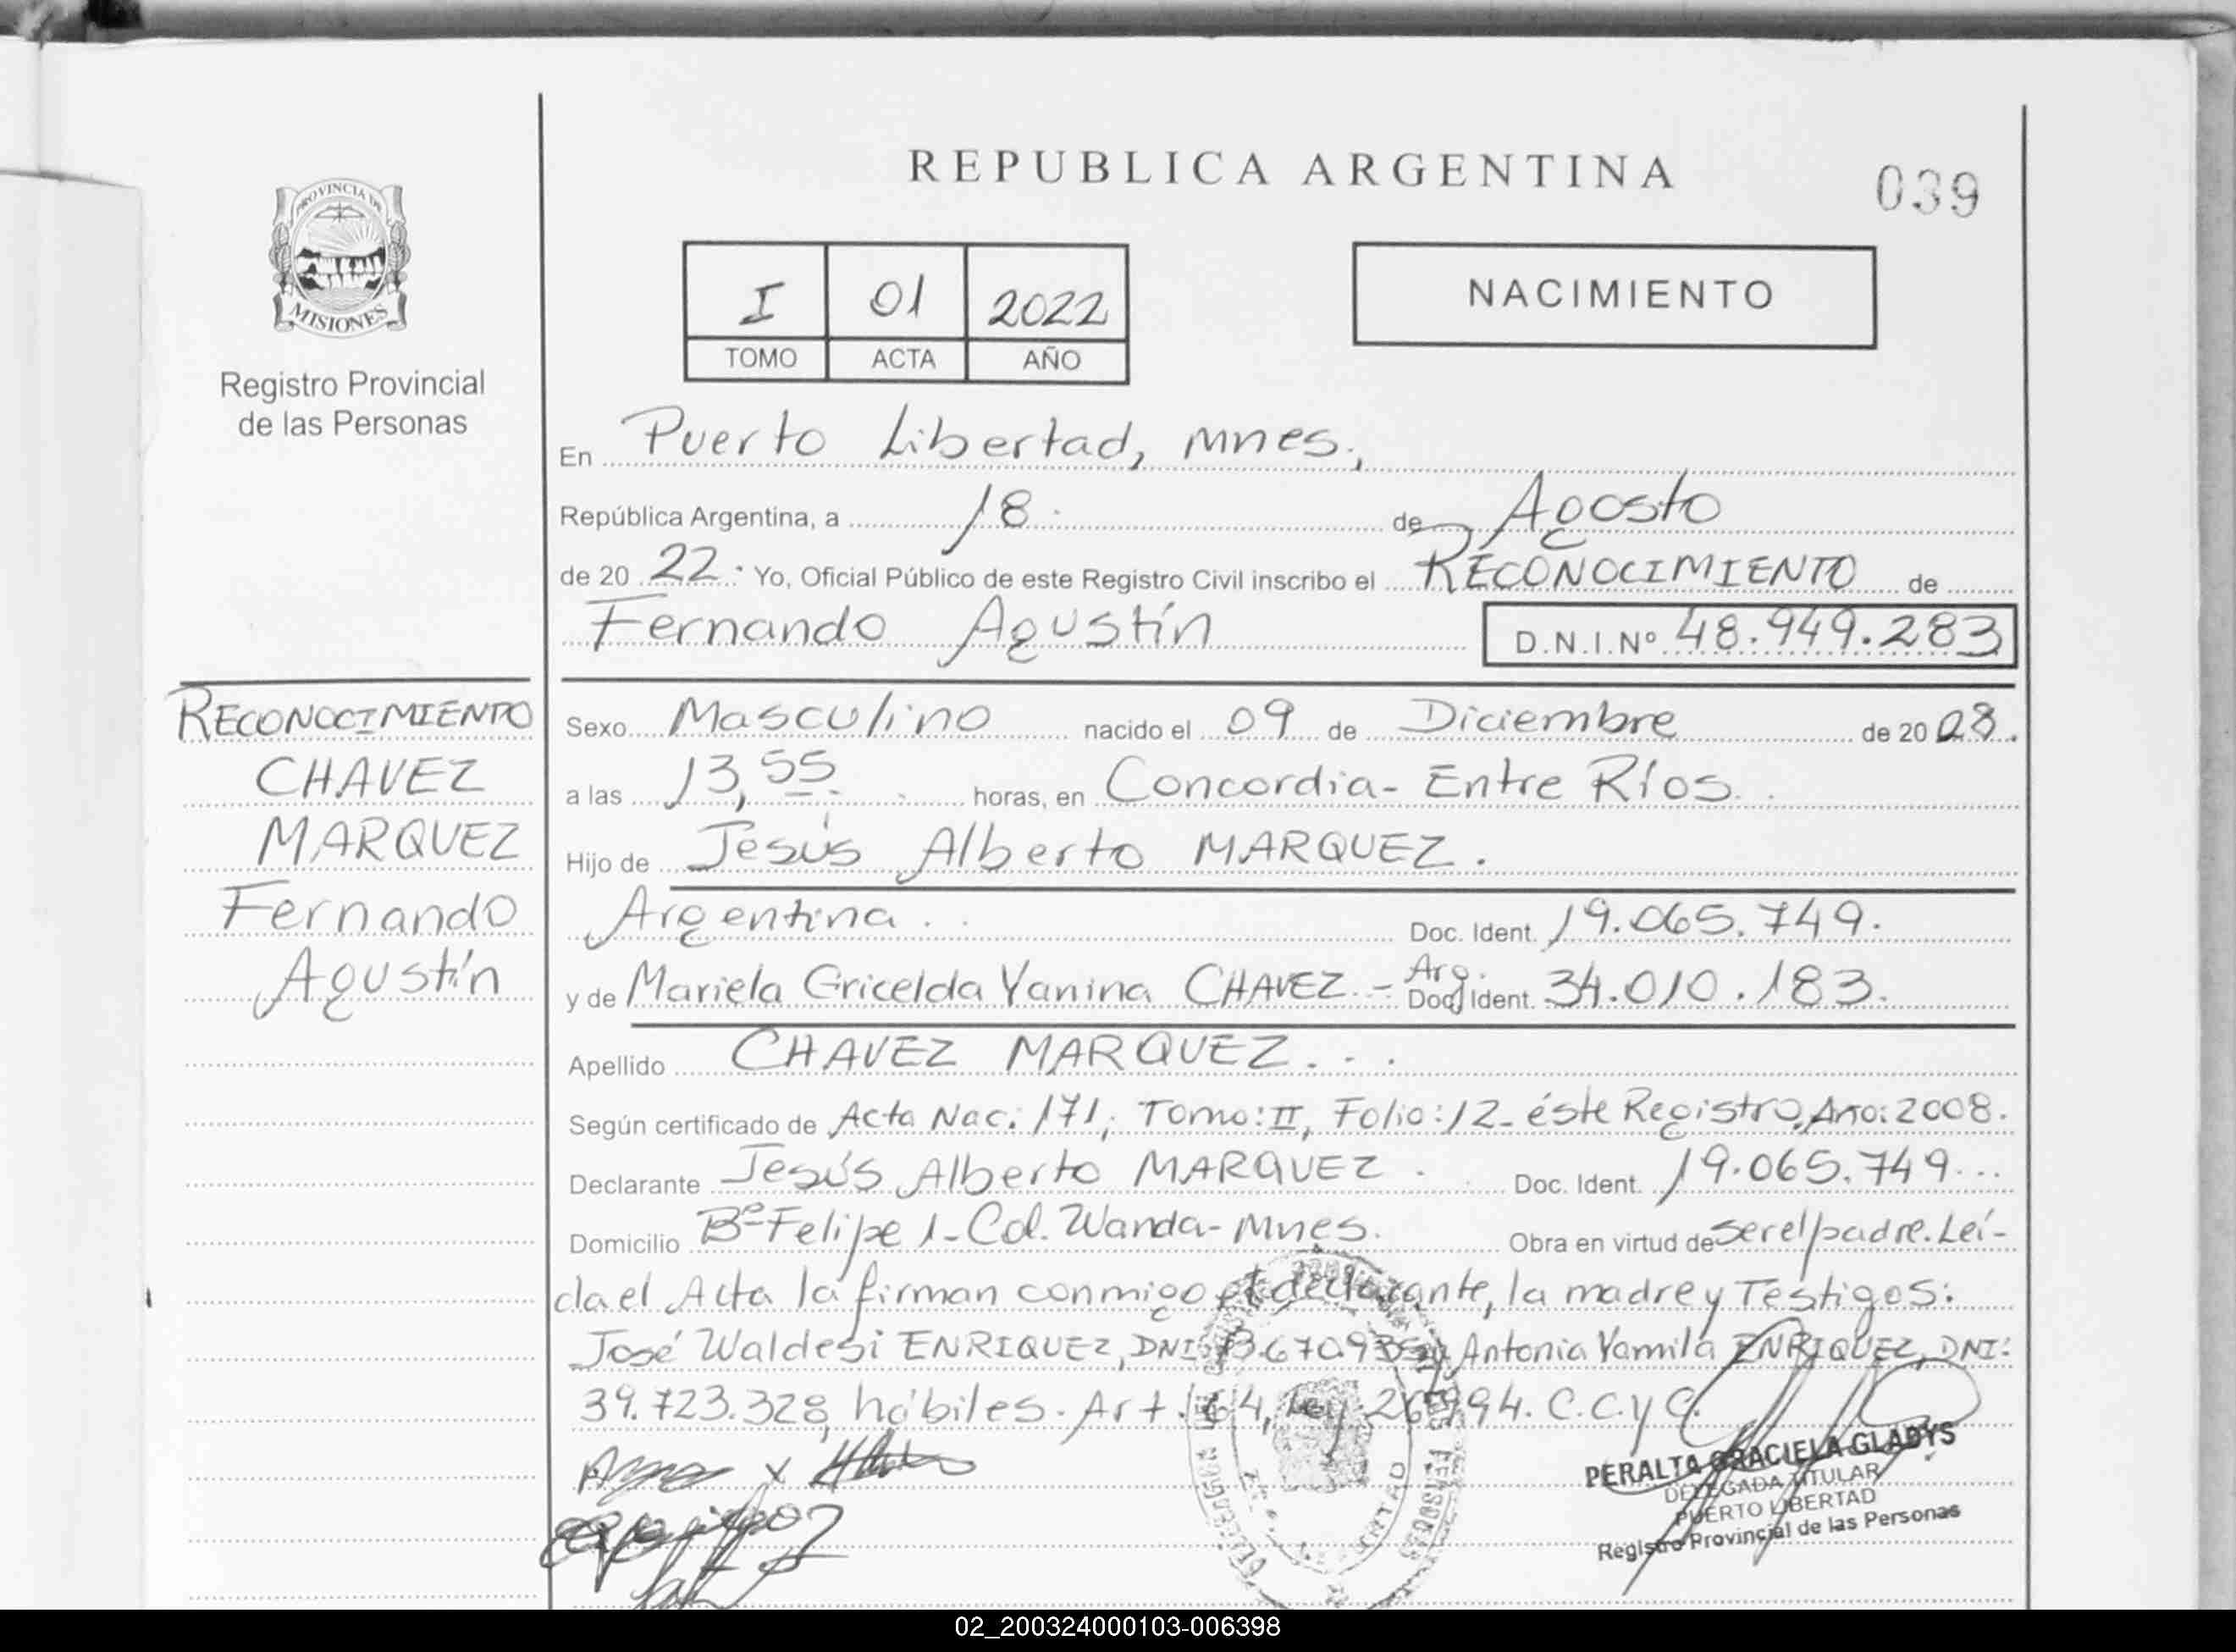 REPUBLICA ARGENTINA
039
PROVINCIA DE
MISIONES
Registro Provincial
de las Personas
I 01 2022
TOMO ACTA AÑO
NACIMIENTO
En Puerto Libertad, Mnes.,
República Argentina, a 18 de Agosto
de 20 22 Yo, Oficial Público de este Registro Civil inscribo el RECONOCIMIENTO de
Fernando Agustín D.N.I.Nº 48.949.283
RECONOCIMIENTO
CHAVEZ
MARQUEZ
Fernando
Agustín
Sexo Masculino nacido el 09 de Diciembre de 20 08.
a las 13,55 horas, en Concordia - Entre Ríos
Hijo de Jesús Alberto MARQUEZ.
Argentina Doc. Ident. 19.065.749.
y de Mariela Gricelda Yanina CHAVEZ - Arg. Doc. Ident. 34.010.183.
Apellido CHAVEZ MARQUEZ.
Según certificado de Acta Nac: 171, Tomo: II, Folio: 12 - éste Registro, Ano: 2008.
Declarante Jesús Alberto MARQUEZ. Doc. Ident. 19.065.749
Domicilio Bº Felipe 1 - Col. Wanda - Mnes. Obra en virtud de ser el padre. Leí-
da el Acta la firman conmigo el declarante, la madre y Testigos:
José Waldesi ENRIQUEZ, DNI: y Antonia Yamila ENRIQUEZ, DNI:
39.723.328, hábiles. Art. 64, Ley 26994. C.C.y C.
PERALTA GRACIELA GLADYS
DELEGADA TITULAR
PUERTO LIBERTAD
Registro Provincial de las Personas
02_200324000103-006398